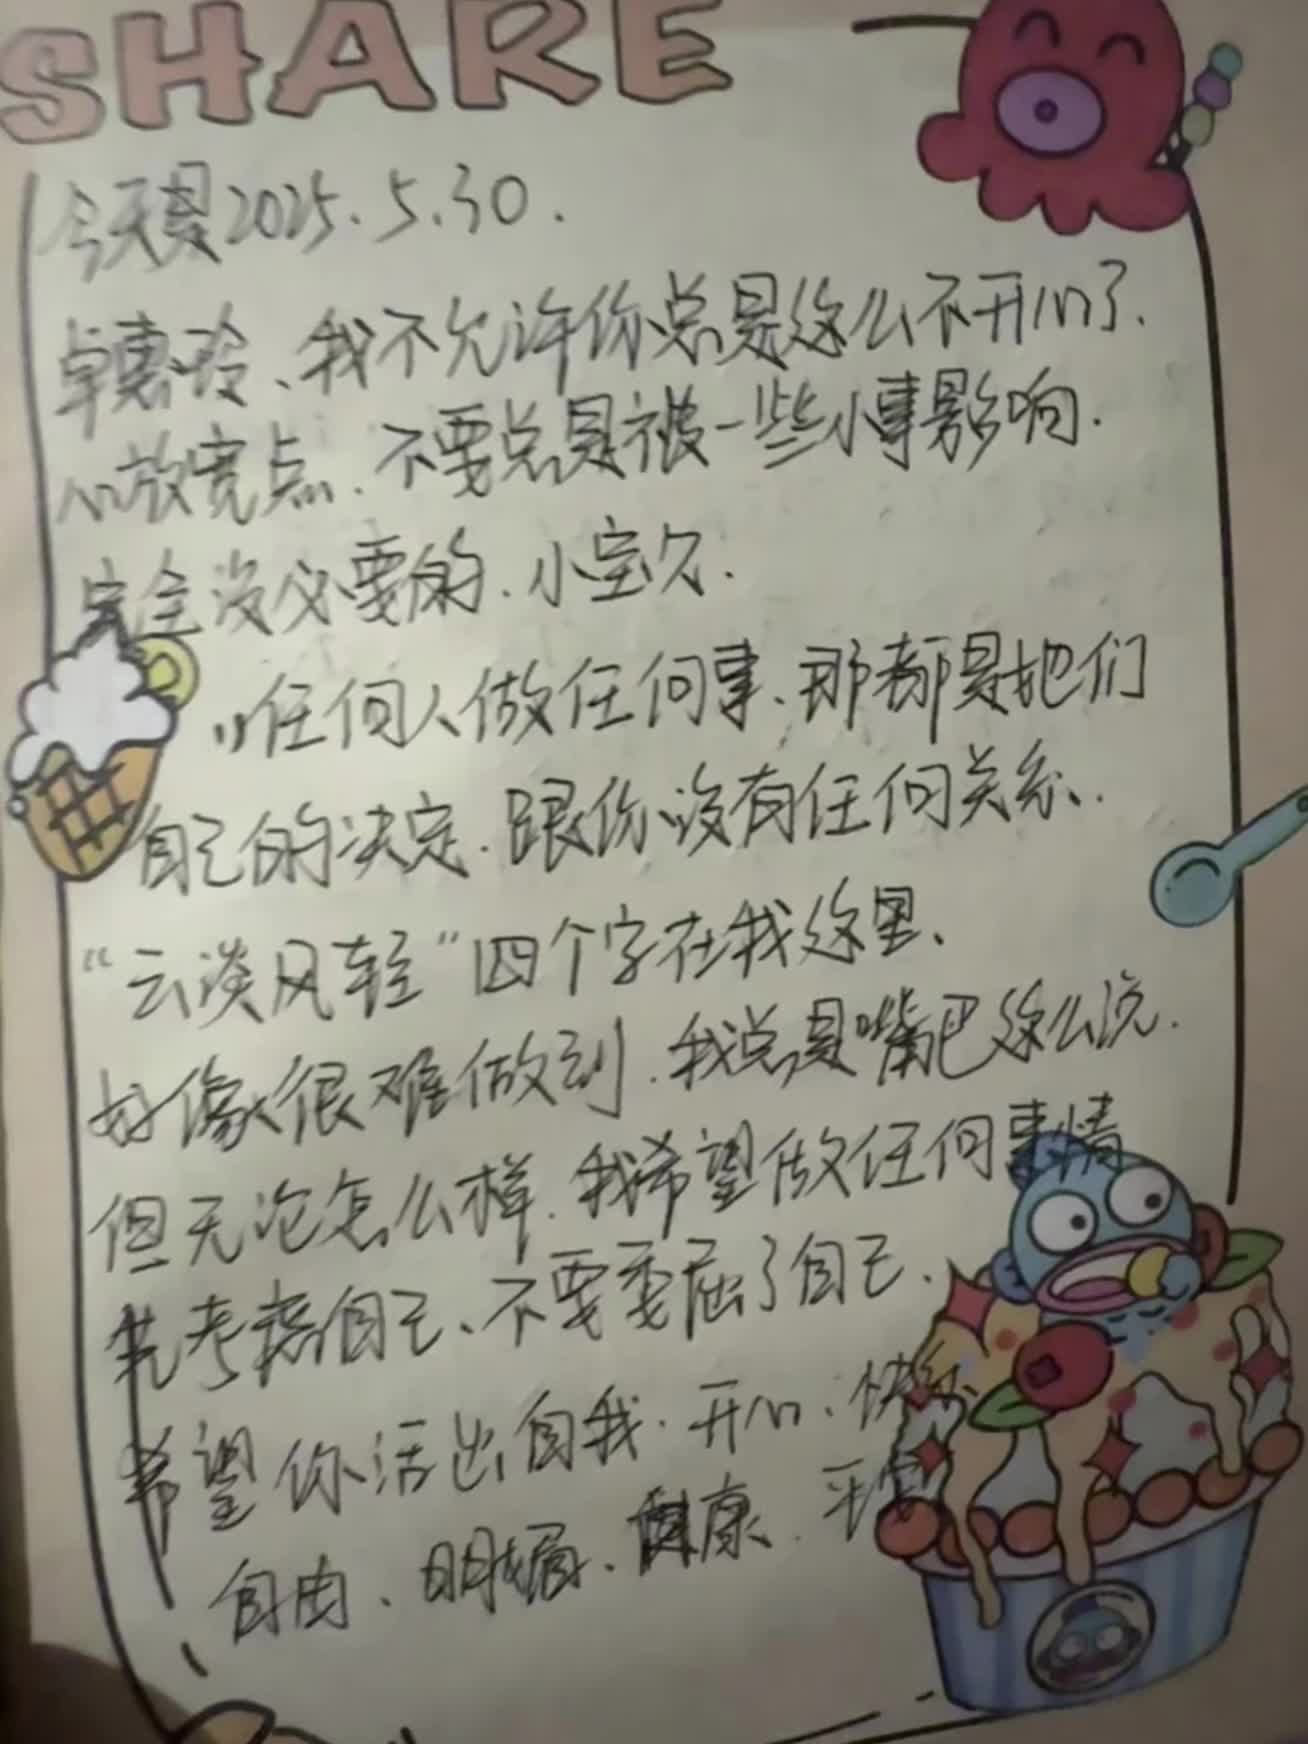 SHARE
今天是2025.5.30.
卓惠玲、我不允许你总是这么不开心了.
心放宽点.不要总是被一些小事影响.
完全没必要的.小宝贝.
"任何人做任何事、那都是她们
自己的决定.跟你没有任何关系.
“云淡风轻”四个字在我这里、
好像很难做到.我总是嘴巴这么说.
但无论怎么样.我希望做任何事情
先考虑自己、不要委屈了自己.
希望你活出自我.开心.快乐.
自由、明媚、健康.平安